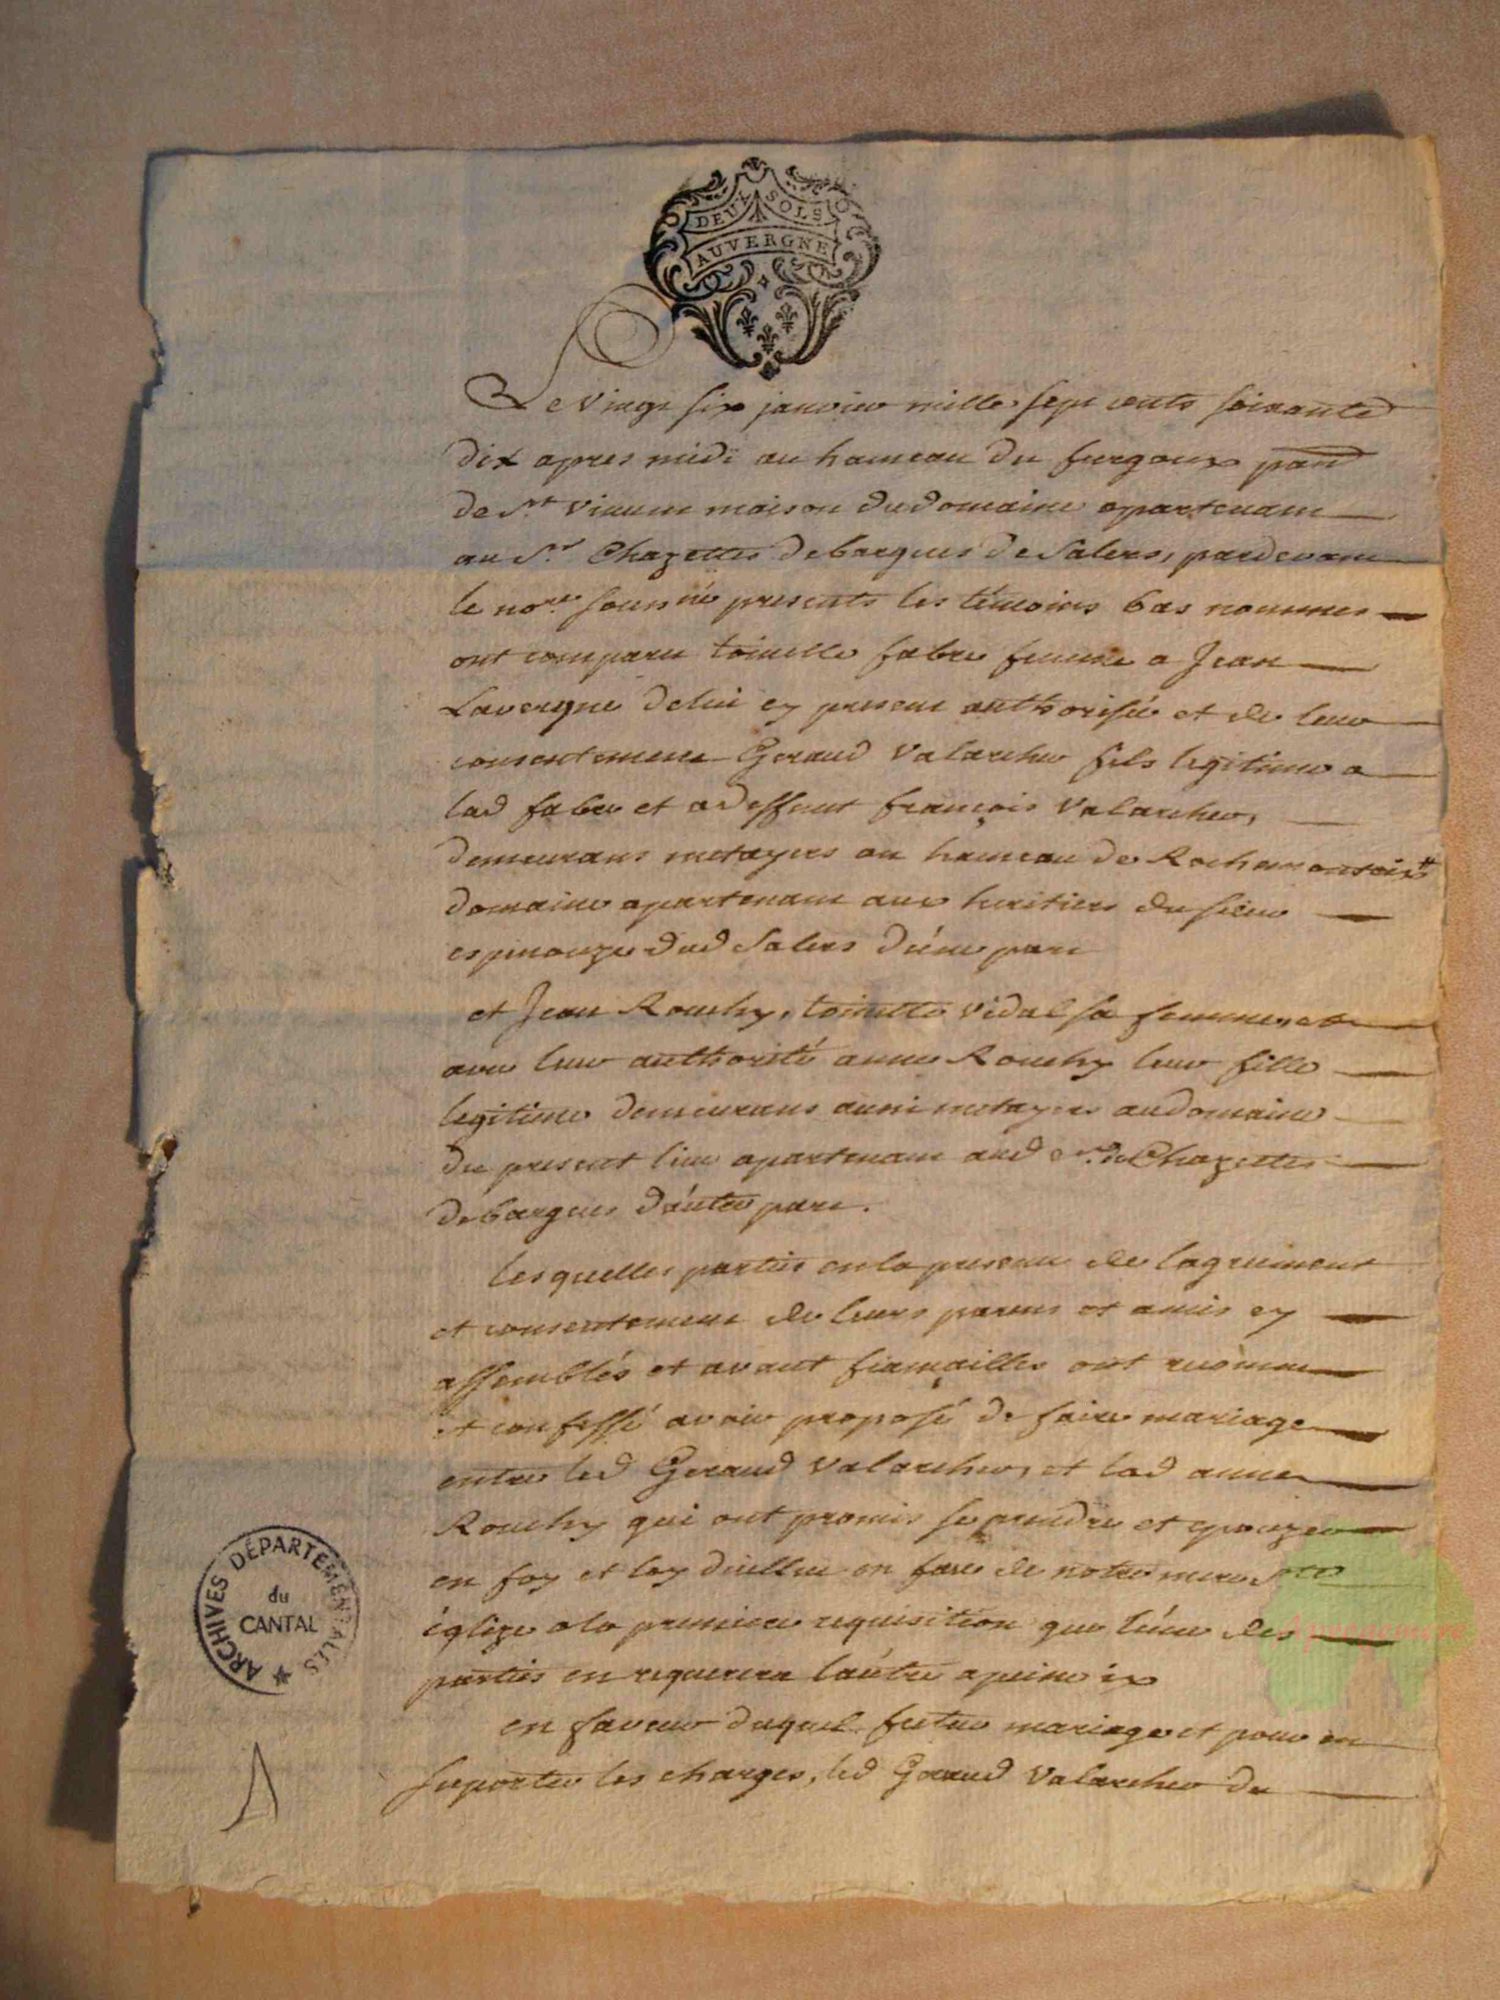 DEUX SOLS
AUVERGNE
Le vingt six janvier mille sept cents soixante
dix apres midi au hameau du furgoux parr
de St vincent maison du domaine apartenant
au Sr Chazettes debargues de Salers, pardevant
le nore soussné presents les témoins bas nommes
ont comparu toinette fabre femme a Jean
Lavergne de lui cy present authorisée et de leur
consentement Geraud Valarcher fils legitime a
lad fabre et a deffunt françois Valarcher,
demeurans metayers au hameau de
domaine apartenant aux heritiers du sieur
espinouze dud Salers d'une part
et Jean Rouchy, toinette vidal sa femme, et
avec leur authorité anne Rouchy leur fille
legitime demeurans aussi metayers au domaine
du present lieu apartenant aud Sr Chazettes
debargues d'autre part.
lesquelles parties en la presence de lagrement
et consentement de leurs parens et amis cy
assemblés et avant fiançailles ont reconnu
et confessé avoir proposé de faire mariage
entre led Geraud Valarcher, et lad anne
Rouchy qui ont promis se prendre et epouzer
en foy et loy d'icelluy en face de notre mere Ste
églize a la premiere requisition que l'une des
parties en requerera lautre a peine
en faveur duquel futur mariage et pour en
suporter les charges, led Geraud Valarcher de
ARCHIVES DÉPARTEMENTALES
du
CANTAL